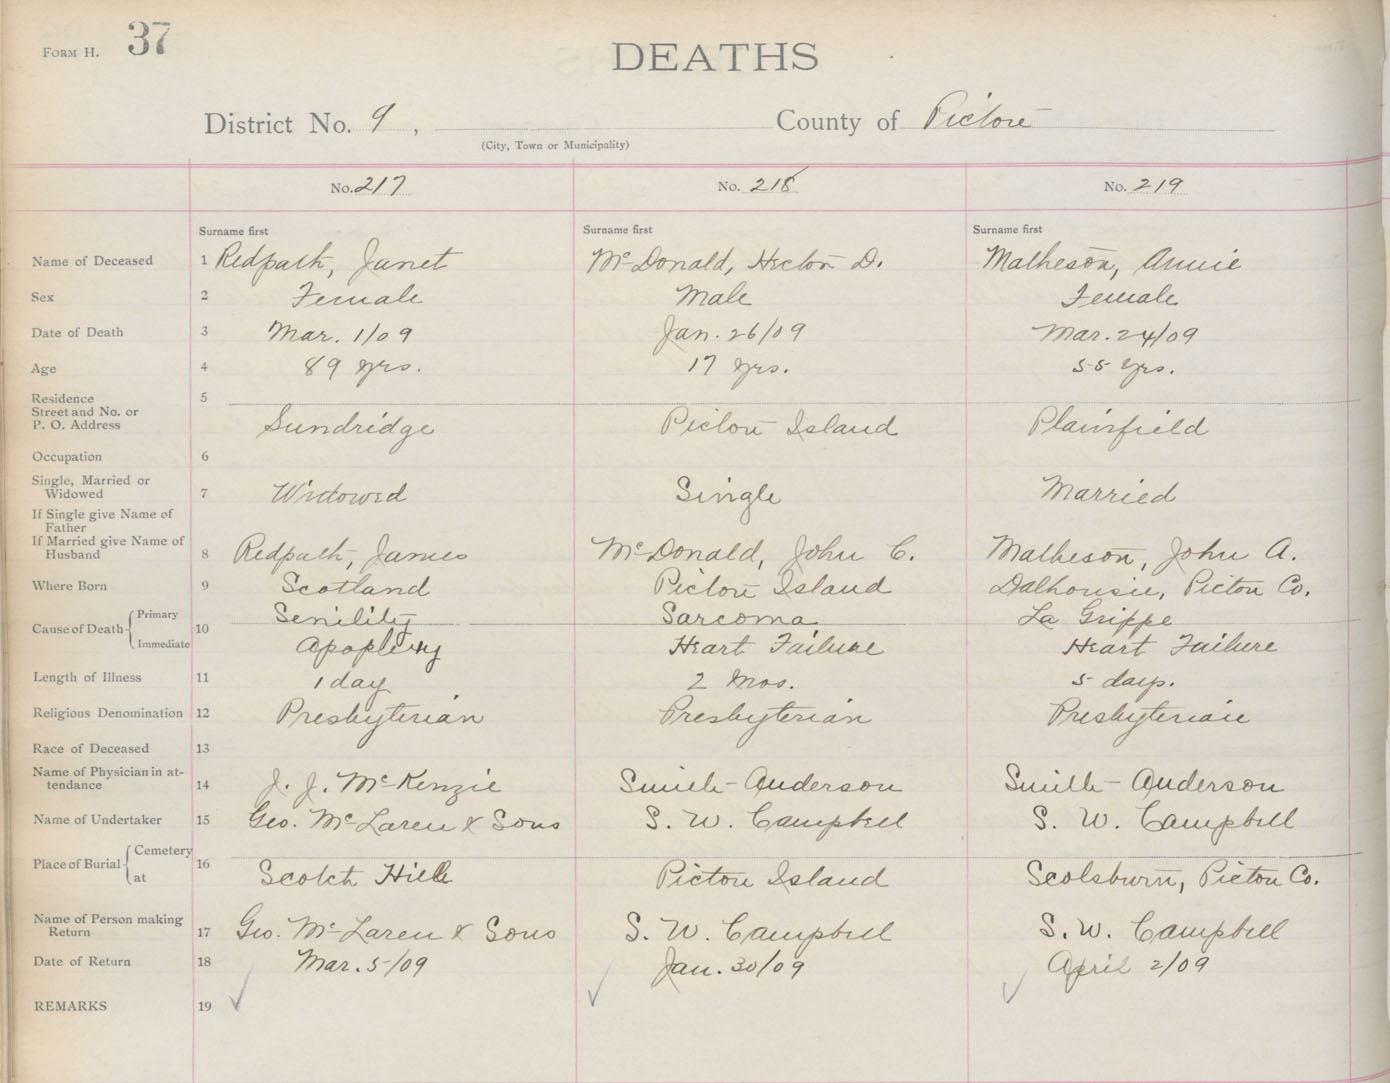 FORM H. 37
DEATHS
District No. 9, County of Pictou
(City, Town or Municipality)
No. 217 No. 218 No. 219
Surname first Surname first Surname first
Name of Deceased 1 Redpath, Janet McDonald, Hector D. Matheson, Annie
Sex 2 Female Male Female
Date of Death 3 Mar. 1/09 Jan. 26/09 Mar. 24/09
Age 4 89 yrs. 17 yrs. 55 yrs.
Residence 5
Street and No. or
P. O. Address Sundridge Pictou Island Plainfield
Occupation 6
Single, Married or
Widowed 7 Widowed Single Married
If Single give Name of
Father
If Married give Name of
Husband 8 Redpath, James McDonald, John C. Matheson, John A.
Where Born 9 Scotland Pictou Island Dalhousie, Pictou Co.
Cause of Death { Primary 10 Senility Sarcoma La Grippe
Immediate Apoplexy Heart Failure Heart Failure
Length of Illness 11 1 day 2 Mos. 5 days.
Religious Denomination 12 Presbyterian Presbyterian Presbyterian
Race of Deceased 13
Name of Physician in at-
tendance 14 J. J. McKenzie Smith-Anderson Smith-Anderson
Name of Undertaker 15 Geo. McLaren & Sons S. W. Campbell S. W. Campbell
Place of Burial { Cemetery 16
at Scotch Hill Pictou Island Scotsburn, Pictou Co.
Name of Person making
Return 17 Geo. McLaren & Sons S. W. Campbell S. W. Campbell
Date of Return 18 Mar. 5/09 Jan. 30/09 April 2/09
REMARKS 19